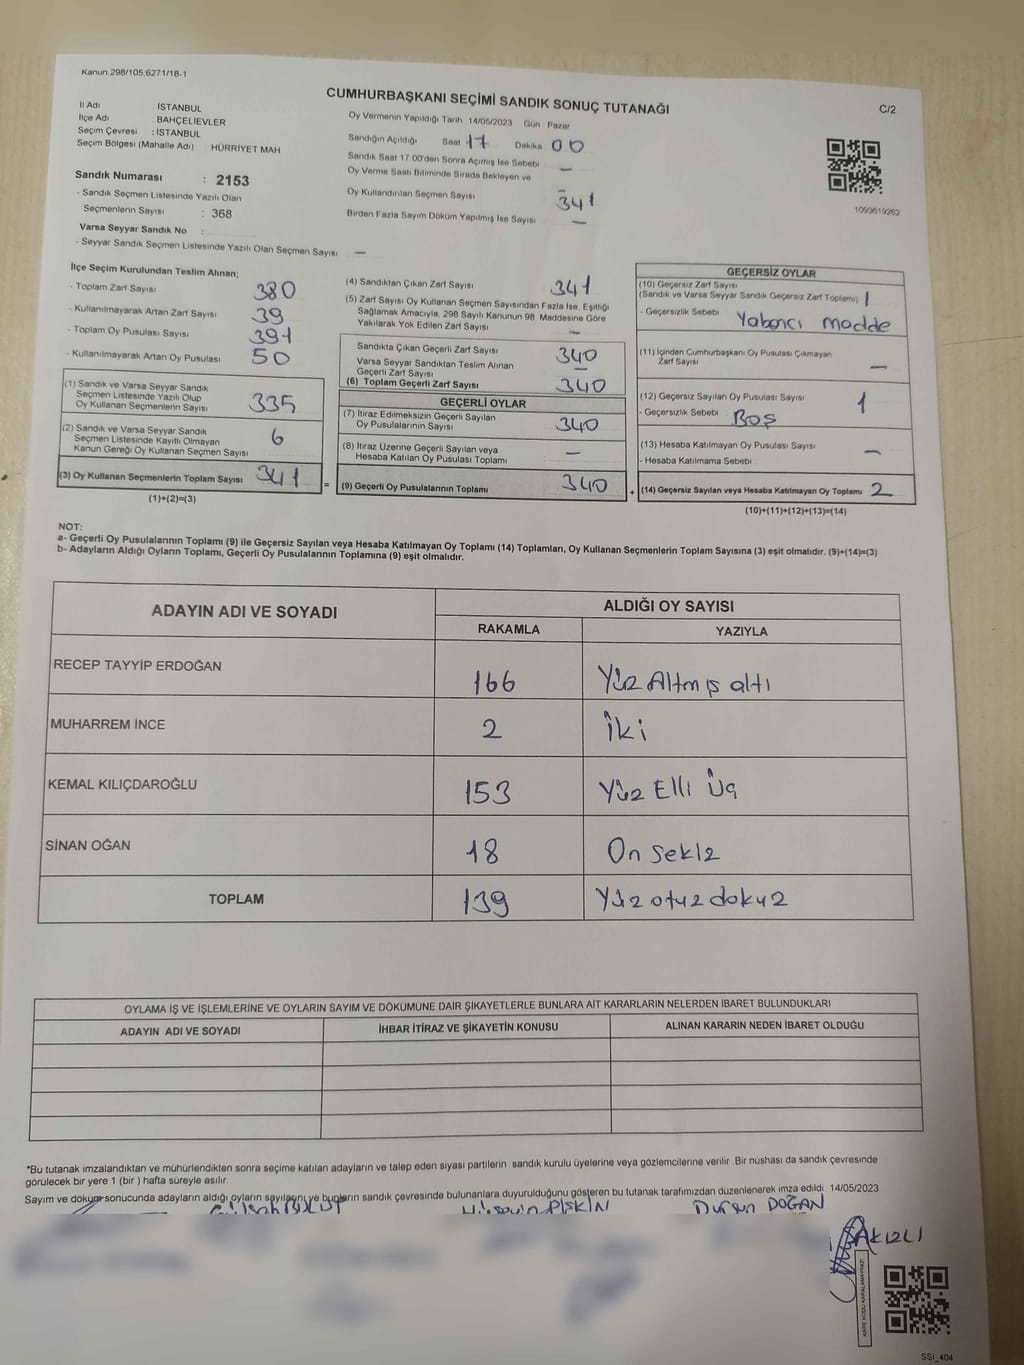 Kanun:298/105;6271/18-1
CUMHURBAŞKANI SEÇİMİ SANDIK SONUÇ TUTANAĞI
C/2
İl Adı İSTANBUL
İlçe Adı BAHÇELİEVLER
Seçim Çevresi : İSTANBUL
Seçim Bölgesi (Mahalle Adı) HÜRRİYET MAH
Sandık Numarası : 2153
- Sandık Seçmen Listesinde Yazılı Olan
Seçmenlerin Sayısı : 368
Varsa Seyyar Sandık No :
- Seyyar Sandık Seçmen Listesinde Yazılı Olan Seçmen Sayısı —
Oy Vermenin Yapıldığı Tarih 14/05/2023 Gün Pazar
Sandığın Açıldığı Saat 17 Dakika 00
Sandık Saat 17.00'den Sonra Açımış İse Sebebi
Oy Verme Saati Bitiminde Sırada Bekleyen ve —
Oy Kullandırılan Seçmen Sayısı 341
Birden Fazla Sayım Döküm Yapılmış İse Sayısı —
1093619262
İlçe Seçim Kurulundan Teslim Alınan;
- Toplam Zarf Sayısı 380
- Kullanılmayarak Artan Zarf Sayısı 39
- Toplam Oy Pusulası Sayısı 391
- Kullanılmayarak Artan Oy Pusulası 50
(1) Sandık ve Varsa Seyyar Sandık
Seçmen Listesinde Yazılı Olup
Oy Kullanan Seçmenlerin Sayısı 335
(2) Sandık ve Varsa Seyyar Sandık
Seçmen Listesinde Kayıtlı Olmayan
Kanun Gereği Oy Kullanan Seçmen Sayısı 6
(3) Oy Kullanan Seçmenlerin Toplam Sayısı 341
(1)+(2)=(3)
=
(4) Sandıktan Çıkan Zarf Sayısı 341
(5) Zarf Sayısı Oy Kullanan Seçmen Sayısından Fazla İse, Eşitliği
Sağlamak Amacıyla, 298 Sayılı Kanunun 98. Maddesine Göre
Yakılarak Yok Edilen Zarf Sayısı —
Sandıkta Çıkan Geçerli Zarf Sayısı 340
Varsa Seyyar Sandıktan Teslim Alınan
Geçerli Zarf Sayısı —
(6) Toplam Geçerli Zarf Sayısı 340
GEÇERLİ OYLAR
(7) İtiraz Edilmeksizin Geçerli Sayılan
Oy Pusulalarının Sayısı 340
(8) İtiraz Üzerine Geçerli Sayılan veya
Hesaba Katılan Oy Pusulası Toplamı —
(9) Geçerli Oy Pusulalarının Toplamı 340
+
GEÇERSİZ OYLAR
(10) Geçersiz Zarf Sayısı
(Sandık ve Varsa Seyyar Sandık Geçersiz Zarf Toplamı) 1
- Geçersizlik Sebebi Yabancı madde
(11) İçinden Cumhurbaşkanı Oy Pusulası Çıkmayan
Zarf Sayısı —
(12) Geçersiz Sayılan Oy Pusulası Sayısı 1
- Geçersizlik Sebebi Boş
(13) Hesaba Katılmayan Oy Pusulası Sayısı —
- Hesaba Katılmama Sebebi
(14) Geçersiz Sayılan veya Hesaba Katılmayan Oy Toplamı 2
(10)+(11)+(12)+(13)=(14)
NOT:
a- Geçerli Oy Pusulalarının Toplamı (9) ile Geçersiz Sayılan veya Hesaba Katılmayan Oy Toplamı (14) Toplamları, Oy Kullanan Seçmenlerin Toplam Sayısına (3) eşit olmalıdır. (9)+(14)=(3)
b- Adayların Aldığı Oyların Toplamı, Geçerli Oy Pusulalarının Toplamına (9) eşit olmalıdır.
ADAYIN ADI VE SOYADI
ALDIĞI OY SAYISI
RAKAMLA YAZIYLA
RECEP TAYYİP ERDOĞAN 166 Yüz Altmış altı
MUHARREM İNCE 2 İki
KEMAL KILIÇDAROĞLU 153 Yüz Elli Üç
SİNAN OĞAN 18 On sekiz
TOPLAM 139 Yüz otuz dokuz
OYLAMA İŞ VE İŞLEMLERİNE VE OYLARIN SAYIM VE DÖKÜMÜNE DAİR ŞİKAYETLERLE BUNLARA AİT KARARLARIN NELERDEN İBARET BULUNDUKLARI
ADAYIN ADI VE SOYADI İHBAR İTİRAZ VE ŞİKAYETİN KONUSU ALINAN KARARIN NEDEN İBARET OLDUĞU
*Bu tutanak imzalandıktan ve mühürlendikten sonra seçime katılan adayların ve talep eden siyasi partilerin sandık kurulu üyelerine veya gözlemcilerine verilir. Bir nüshası da sandık çevresinde
görülecek bir yere 1 (bir ) hafta süreyle asılır.
Sayım ve döküm sonucunda adayların aldığı oyların sayılarını ve bunların sandık çevresinde bulunanlara duyurulduğunu gösteren bu tutanak tarafımızdan düzenlenerek imza edildi. 14/05/2023
Hüseyin PİŞKİN Dursun DOĞAN
KARE KODU KARALAMAYINIZ!
SSI_404